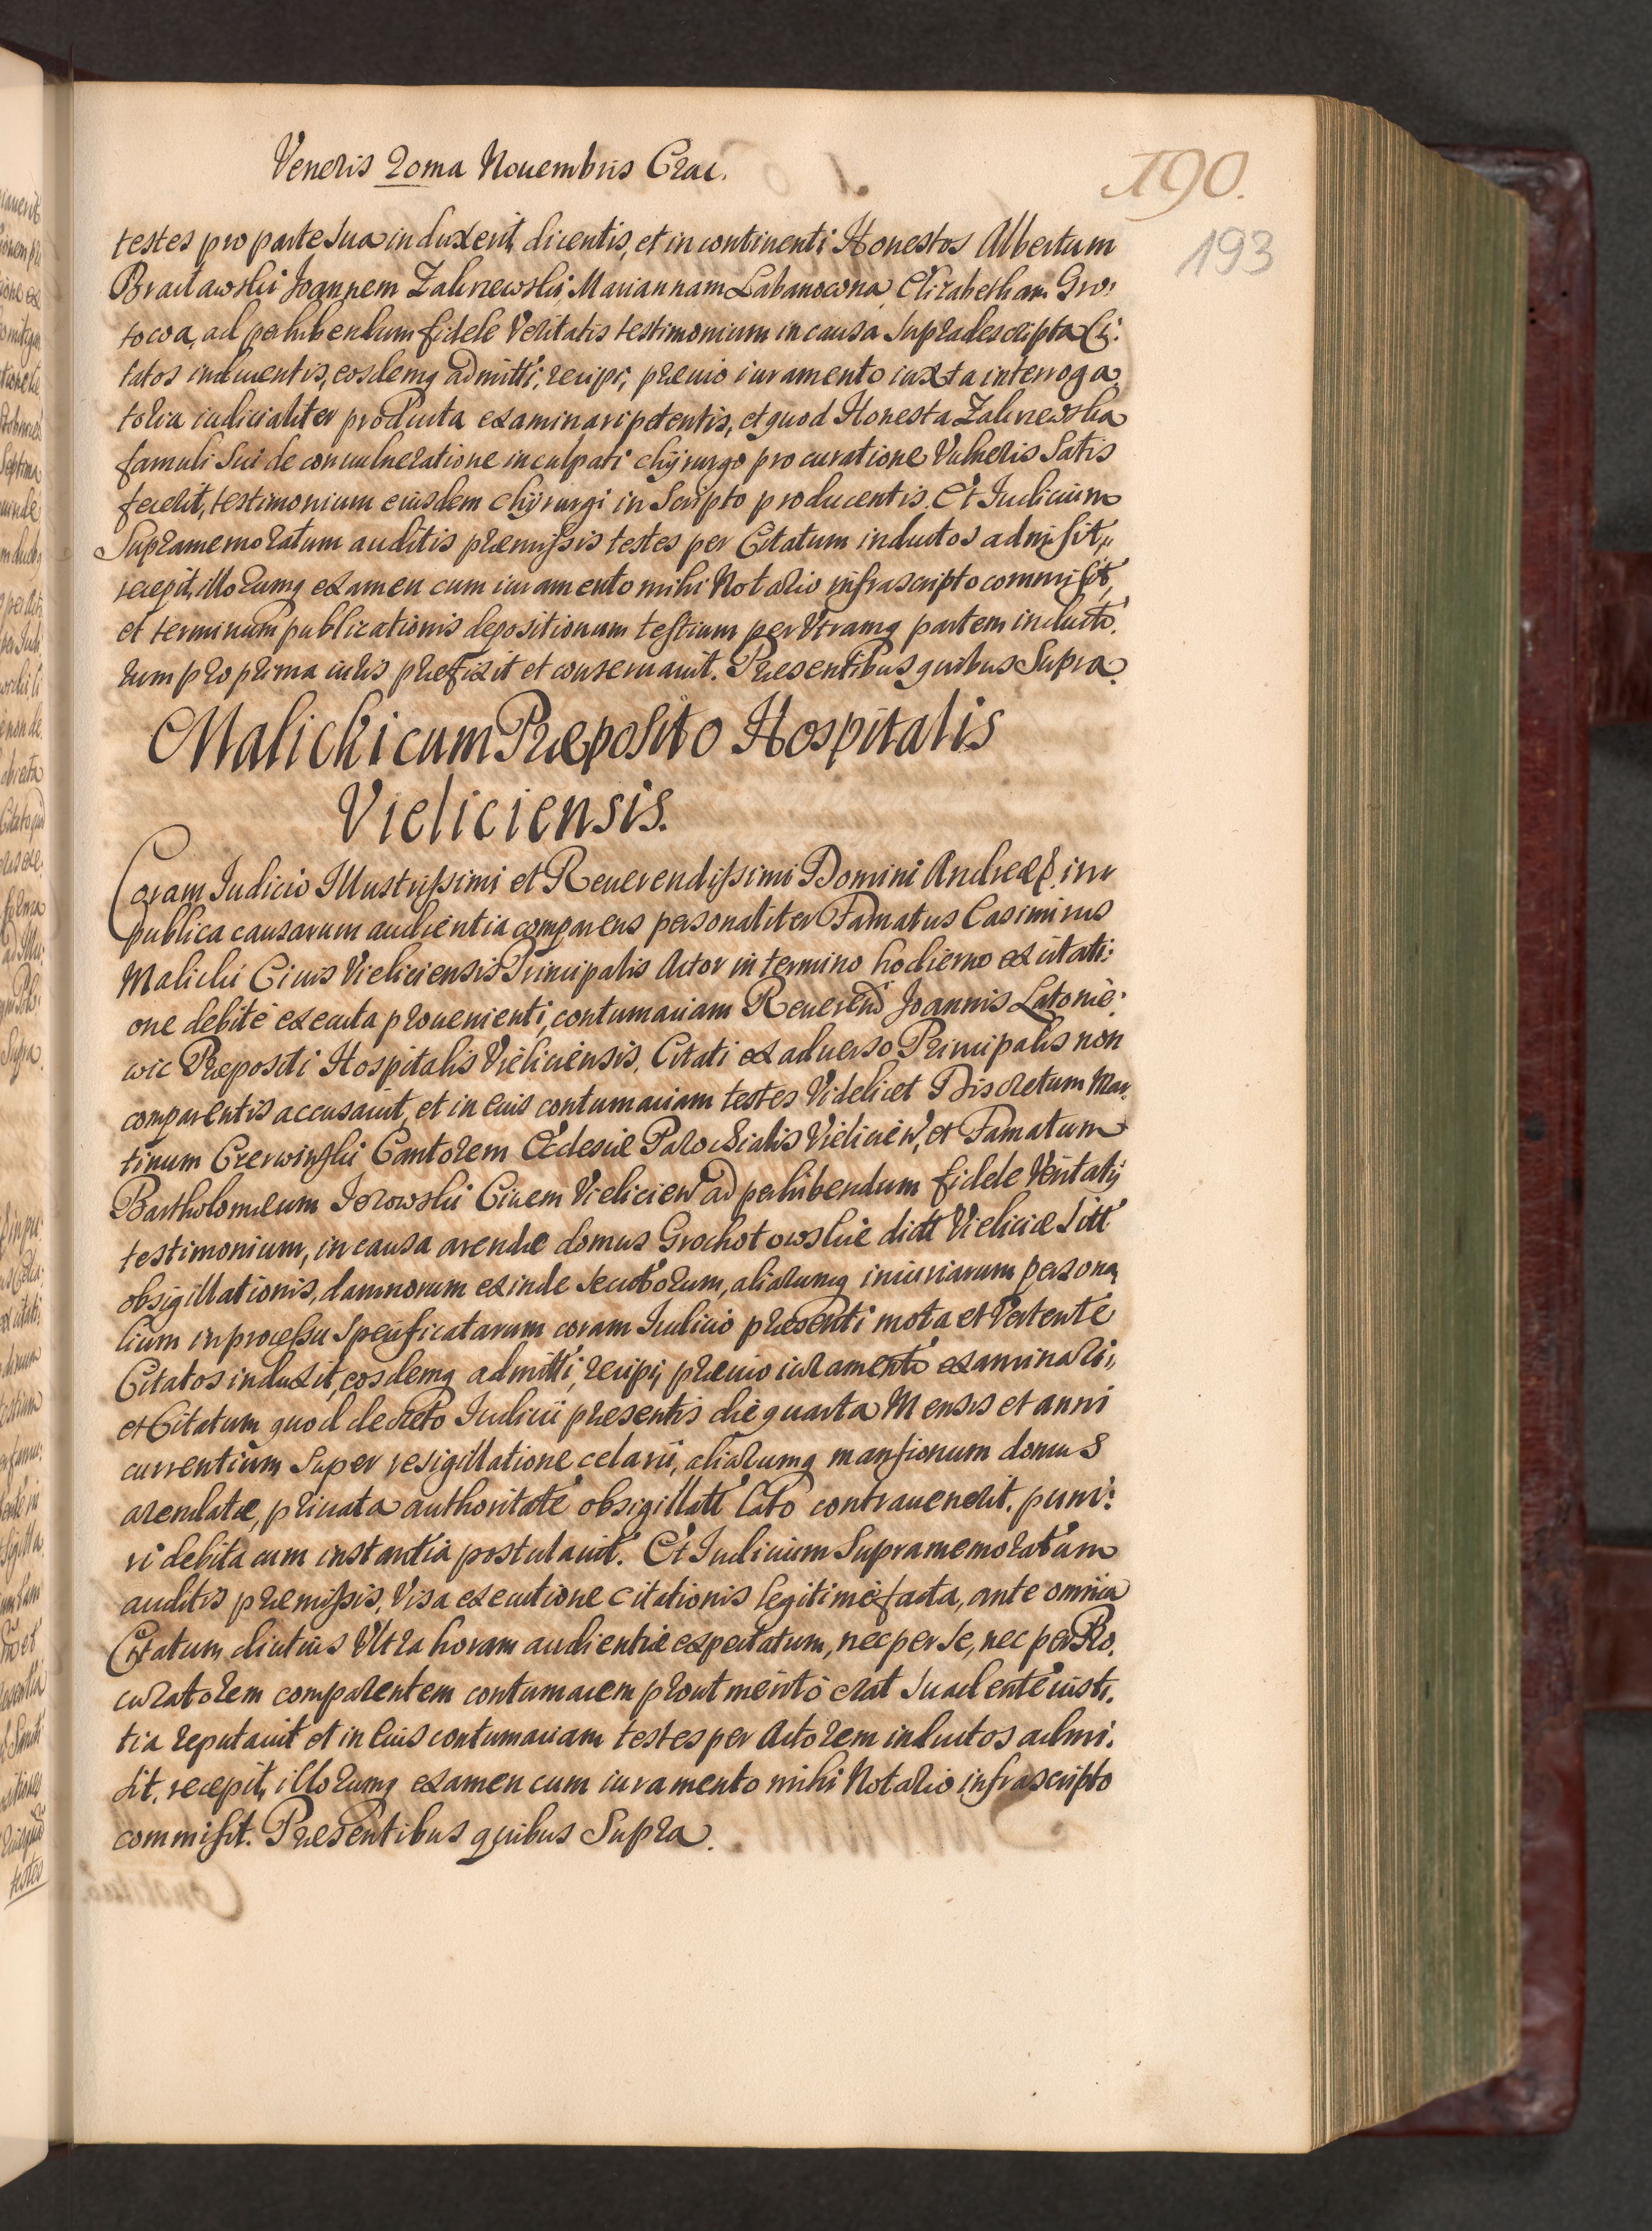 Veneris 20ma Nouembris Crac.
190.
193
testes pro parte sua induxerit, dicentis, et in continenti Honestos Albertum
Bracławski Joannem Zakrzewski, Mariannam Łabanowna Elizabetham Gro:
towa, ad perhibendum fidele Veritatis testimonium in causa supradescripta Ci:
tatos inducentis, eosdemq admitti, recipi, præuio iuramento iuxta interroga
toria iudicialiter producta examinari petentis, et quod Honesta Zakrzewska
famuli sui de conuulneratione inculpati chyrurgo pro curatione Vulneris satis
fecerit, testimonium eiusdem chyrurgi in Scripto producentis. Et Iudicium
Supramemoratum auditis præmissis testes per Citatum inductos admisit,
recepit, illorumq examen cum iuramento mihi Notario infrascripto commisit,
et terminum publicationis depositionum testium per Vtramq partem inducto.
rum pro prima iuris præfixit et conseruauit. Præsentibus quibus Supra.
Malicki cum Præposito Hospitalis
Vieliciensis.
Coram Iudicio Illustrissimi et Reuerendissimi Domini Andreæ E. in
publica causarum audientia comparens personaliter Famatus Casimirus
Malicki Ciuis Vieliciensis Principalis Actor in termino hodierno ex citati:
one debite executa prouenienti, contumaciam Reuerend Joannis Latonie:
wic Præpositi Hospitalis Vieliciensis. Citati ex aduerso Principalis non
comparentis accusauit, et in eius contumaciam testes Videlicet Discretum Mar.
tinum Czerwinski Cantorem Ecclesiæ Parochialis Vieliciен, et Famatum
Bartholomæum Jerowski Ciuem Vielicien ad perhibendum fidele Veritatis
testimonium, in causa arendæ domus Grochotowskie dictt Vieliciæ sitt
obsigillationis, damnorum exinde secutorum, aliarumq iniuriarum persona
lium in processu specificatarum coram Iudicio præsenti mota et Vertente
Citatos induxit, eosdemq admitti, recipi, præuio iuramento examinari,
et Citatum, quod decreto Iudicii præsentis die quarta Mensis et anni
currentium super resigillatione celarii, aliarumq mansionum domus
arendatæ, priuata authoritate obsigillatt lato contrauenerit. puni:
ri debita cum instantia postulauit. Et Iudicium Supramemoratum
auditis præmissis, Visa executione citationis legitime facta, ante omnia
Citatum diutius Vltra horam audientiæ expectatum, nec per se, nec per Pro.
curatorem comparentem contumacem prout merito erat suadente iusti.
tia reputauit et in eius contumaciam testes per Actorem inductos admi.
sit, recepit, illorumq examen cum iuramento mihi Notario infrascripto
commisit. Præsentibus quibus Supra.